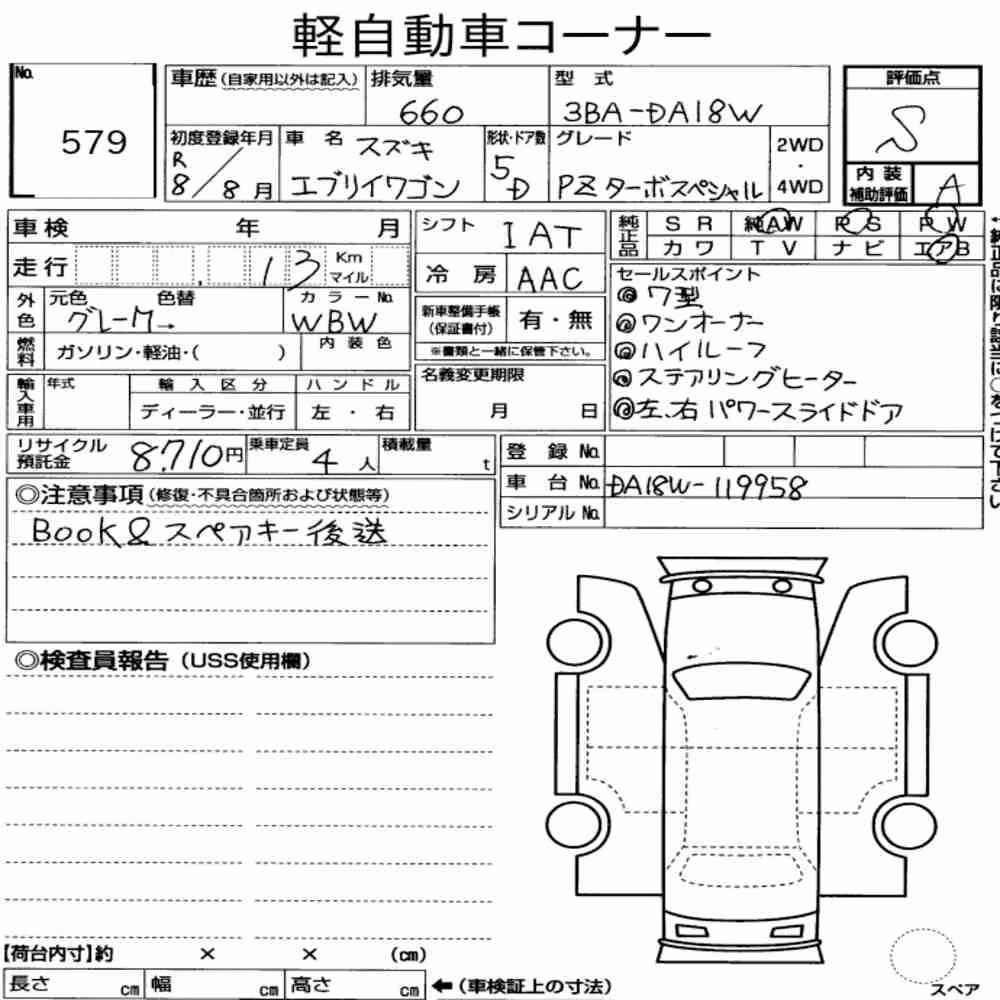 軽自動車コーナー
No.
579
車歴(自家用以外は記入)
排気量
660
型 式
3BA-DA18W
評価点
S
初度登録年月
R
8/8月
車 名 スズキ
エブリイワゴン
形状・ドア数
5
D
グレード
PZターボスペシャル
2WD
・
4WD
内 装
補助評価
A
車検 年 月
シフト IAT
純正品
S R 純AW P S P W
カ ワ T V ナ ビ エアB
走行 , 13 Km
マイル
冷 房 AAC
外色
元色 色替
グレーM→
カ ラ ー No.
WBW
新車整備手帳
(保証書付)
有・無
※書類と一緒に保管下さい。
セールスポイント
◎ 7型
◎ワンオーナー
◎ハイルーフ
◎ステアリングヒーター
◎左、右 パワースライドドア
燃料
ガソリン・軽油・( )
内 装 色
輸入車用
年式
輸 入 区 分
ハ ン ド ル
ディーラー・並行
左 ・ 右
名義変更期限
月 日
リサイクル
預託金
8,710円
乗車定員
4 人
積載量
t
登 録 No.
車 台 No. DA18W-119958
シリアル No.
◎注意事項(修復・不具合箇所および状態等)
Book& スペアキー後送
◎検査員報告(USS使用欄)
【荷台内寸】約 × × (cm)
長さ cm 幅 cm 高さ cm ←(車検証上の寸法)
スペア